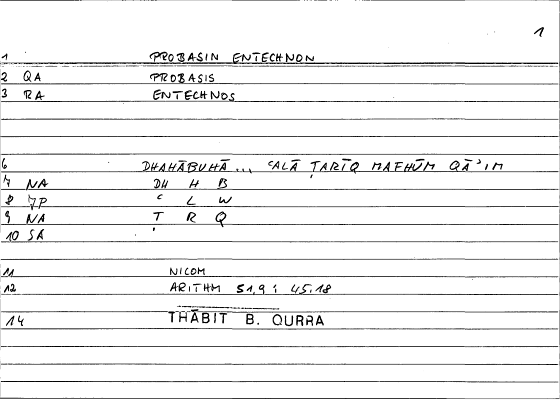 1
1 PROBASIN ENTECHNON
2 QA PROBASIS
3 RA ENTECHNOS
6 DHAHĀBUHĀ... ʿALĀ ṬARĪQ MAFHŪM QĀʾIM
7 NA DH H B
8 JP ʿ L W
9 NA Ṭ R Q
10 SA
11 NICOM
12 ARITHM 51,9 : 45.18
14 THĀBIT B. QURRA